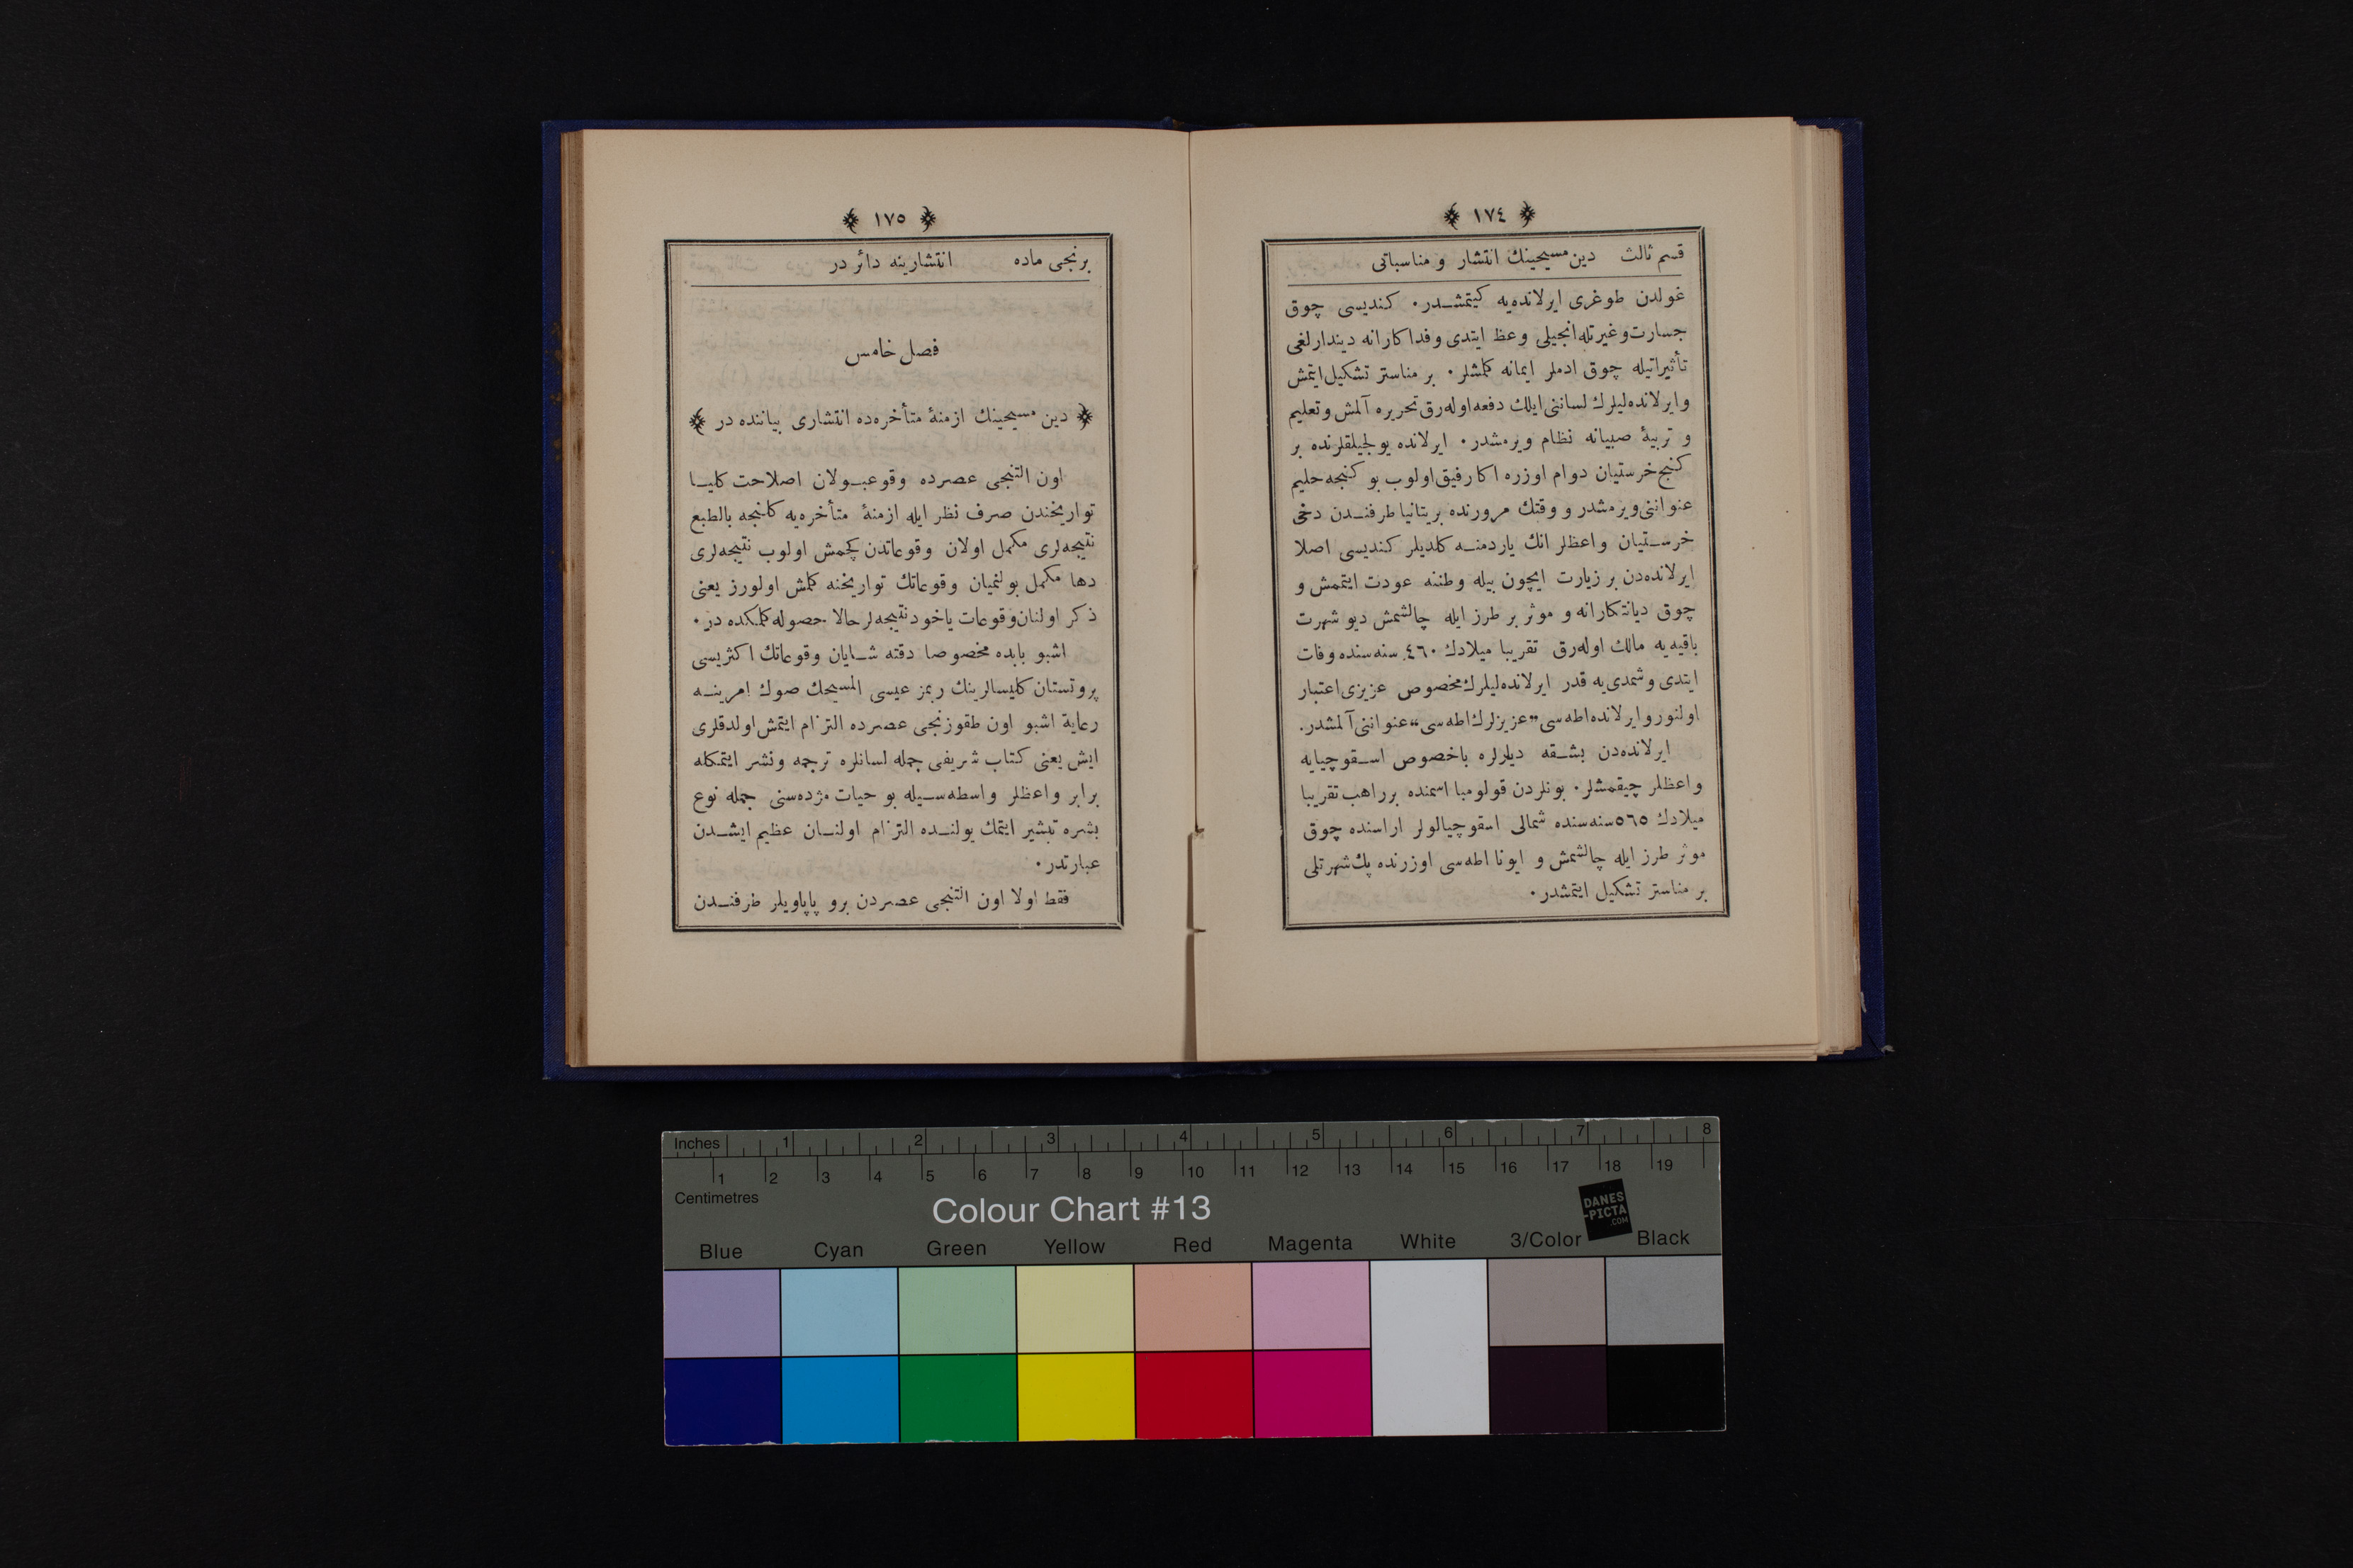 ﴿ ١٧٤ ﴾
قسم ثالث دین مسیحینك انتشار و مناسباتی
غولدن طوغری ایرلانده‌یه کیتمشـدر. کندیسی چوق
جسارت و غیرتله انجیلی وعظ ایتدی و فداکارانه دیندارلغی
تأثیراتیله چوق ادملر ایمانه کلمشلر. بر مناستر تشکیل ایتمش
و ایرلانده‌لیلرك لساننی ایلك دفعه اوله‌رق تحریره آلمش و تعلیم
و تربیهٔ صبیانه نظام ویرمشدر. ایرلانده یولجیلقلرنده بر
کنج خرستیان دوام اوزره اکا رفیق اولوب بو کنجه حلیم
عنواننی ویرمشدر و وقتك مرورنده بریتانیا طرفنـدن دخی
خرسـتیان واعظلر انك یاردمنـه کلدیلر کندیسی اصلا
ایرلانده‌دن بر زیارت ایچون بیله وطننه عودت ایتممش و
چوق دیانتکارانه و موثر بر طرز ایله چالشمش دیو شهرت
باقیه‌یه مالك اوله‌رق تقریبا میلادك ٤٦٠ سنه‌سنده وفات
ایتدی و شمدی‌یه قدر ایرلانده‌لیلرك مخصوص عزیزی اعتبار
اولنور و ایرلانده اطه‌سی „عزیزلرك اطه‌سی“ عنواننی آلمشدر.
ایرلانده‌دن بشـقه دیلرلره باخصوص اسـقوچیایه
واعظلر چیقمشلر. بونلردن قولومبا اسمنده بر راهب تقریبا
میلادك ٥٦٥ سنه‌سنده شمالی اسقوچیالولر اراسنده چوق
موثر طرز ایله چالشمش و ایونا اطه‌سی اوزرنده پك شهرتلی
بر مناستر تشکیل ایتمشدر.
﴿ ١٧٥ ﴾
برنجی ماده انتشارینه دائر در
فصل خامس
﴿ دین مسیحینك ازمنهٔ متأخره‌ده انتشاری بیاننده در ﴾
اون التنجی عصرده وقوعبـولان اصلاحت کلیسا
تواریخندن صرف نظر ایله ازمنهٔ متأخره‌یه کلنجه بالطبع
نتیجه‌لری مکمل اولان وقوعاتدن کچمش اولوب نتیجه‌لری
دها مکمل بولنمیان وقوعاتك تواریخنه کلمش اولورز یعنی
ذکر اولنان وقوعات یاخود نتیجه‌لر حالا حصوله کلمکده در.
اشبو بابده مخصوصا دقته شـایان وقوعاتك اکثریسی
پروتستان کلیسالرینك ربمز عیسی المسیحك صوك امرینـه
رعایة اشبو اون طقوزنجی عصرده التزام ایتمش اولدقلری
ایش یعنی کتاب شریفی جمله لسانلره ترجمه و نشر ایتمکله
برابر واعظلر واسطه‌سـیله بو حیات مژده‌سنی جمله نوع
بشره تبشیر ایتمك یولنـده التزام اولنـان عظیم ایشـدن
عبارتدر.
فقط اولا اون التنجی عصردن برو پاپاویلر طرفنـدن
Inches 1 2 3 4 5 6 7 8
1 2 3 4 5 6 7 8 9 10 11 12 13 14 15 16 17 18 19
Centimetres
Colour Chart #13
DANES
-PICTA
.COM
Blue Cyan Green Yellow Red Magenta White 3/Color Black